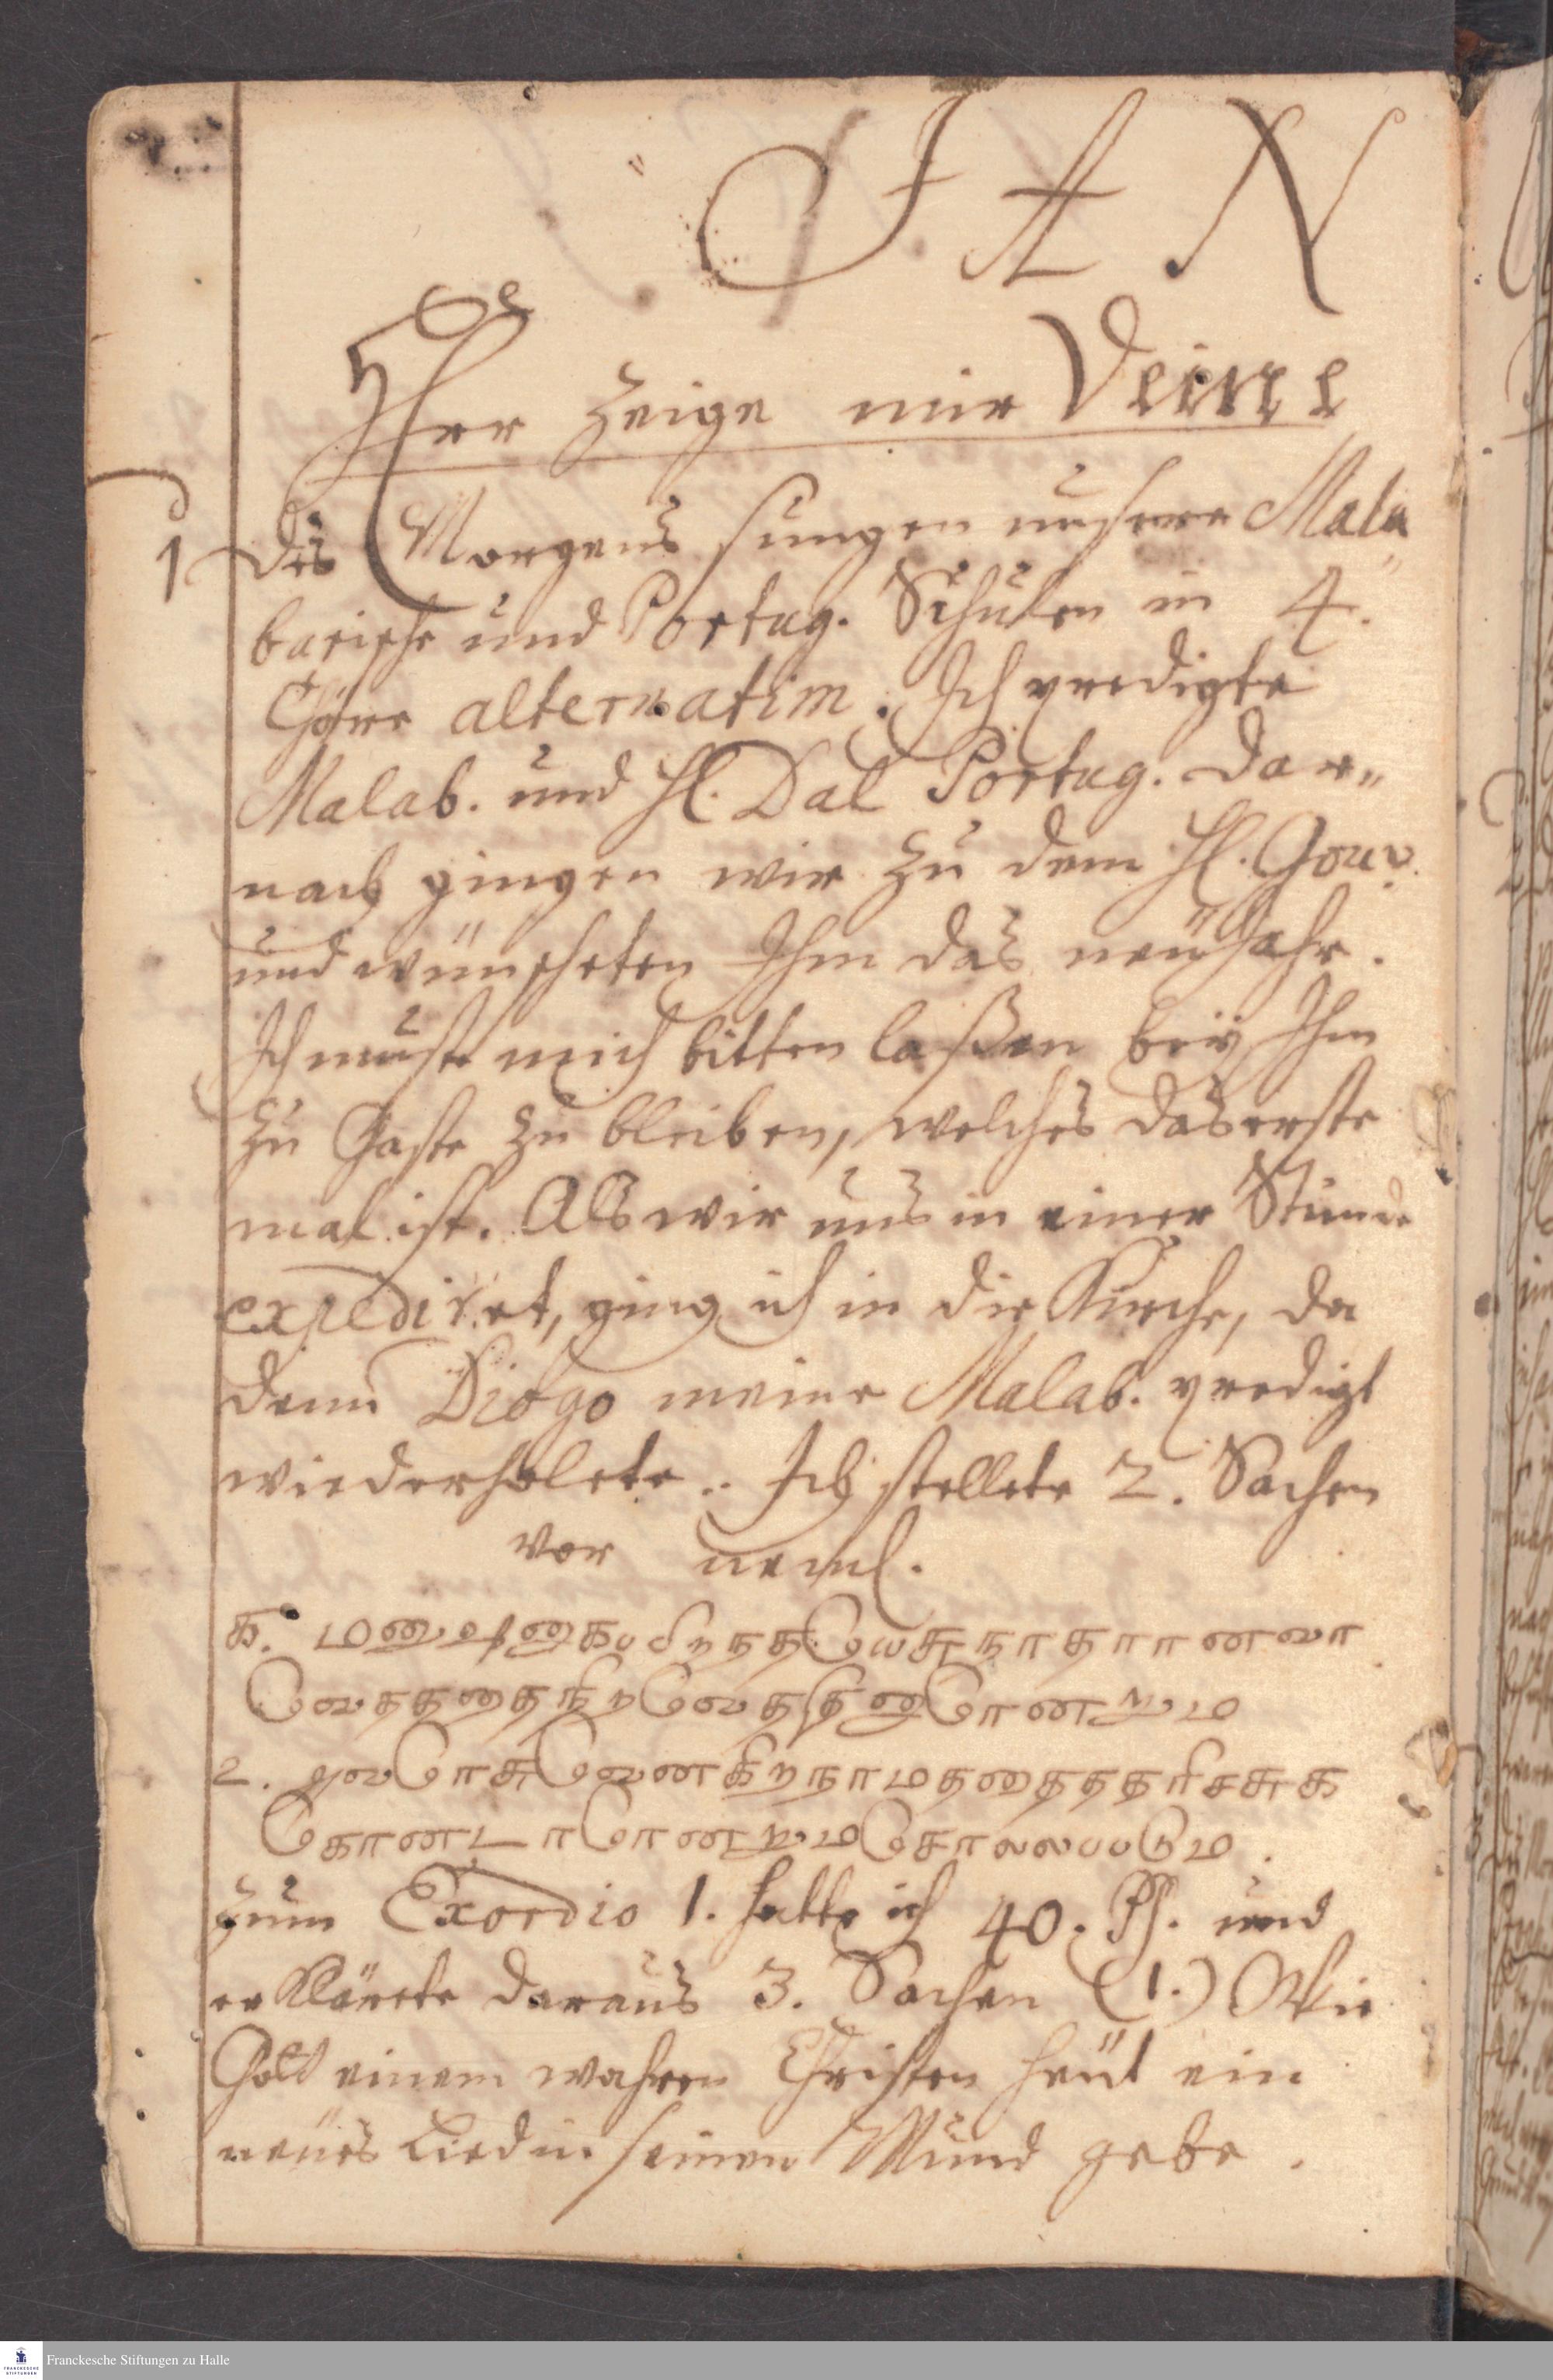 J A N
HErr zeige mir Deine
1 des Morgens sungen unsere Mala
barische und Portug. Schulen in 4.
Chöre alternatim. Ich predigte
Malab. und H. Dal Portug. Dar„
nach gingen wir zu dem H. Gouv.
und wünscheten Ihm das neü Jahr.
Ich muste mich bitten laßen beÿ Ihm
zu Gaste zu bleiben, welches das erste
mal ist. Als wir uns in einer Stunde
expediret, ging ich in die Kirche, da
denn Diogo meine Malab. predigt
wiederholete. Ich stellete 2. Sachen
vor neml.
௧. மனுஷனகபபிறநதயேசுநாதரானவா
வேதததைநிறவேததினதோனறும
௨. யேசுவேனகிறநாமததைததரிசசுக
கொணடாரோனறுமசொலலபபடும.
zum Exordio 1. hatte ich 40. Ps. und
erklärete daraus 3. Sachen (1.) Wie
Gott einem wahren Christen heüt ein
neües Lied in seinen Mund gebe.
Franckesche Stiftungen zu Halle